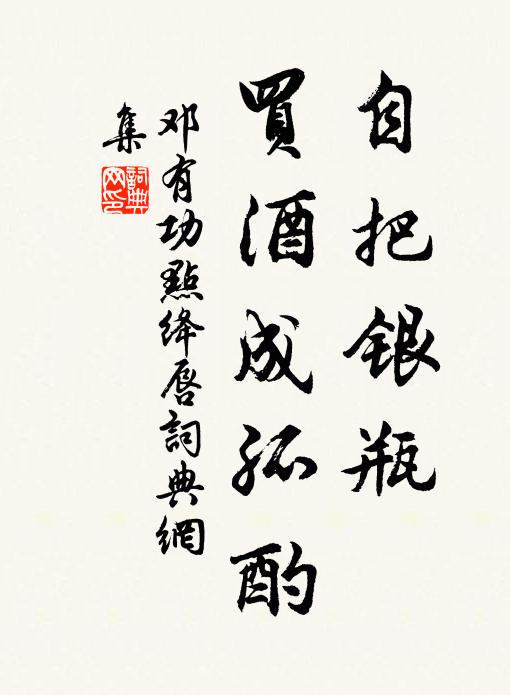 自把银瓶
買酒成孤酌
邓有功點绛唇詞典網
集
詞典
网印